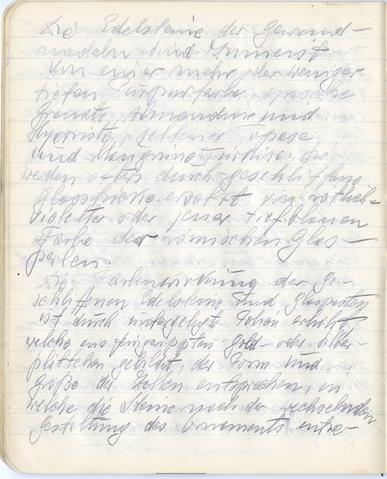 Die Edelsteine der Gewand-
nadeln sind zumeist
von einer mehr oder weniger
tiefen Purpurfarbe, syrische
Granate, Almandine und
Hyazinthe, seltener
und
werden öfters durch geschliffene
Glasstücke ersetzt von rötlich
violetter oder jener tiefblauen
Farbe der römischen Glas-
perlen.
Die Farbenwirkung der ge-
schliffenen Edelsteine und Glaspasten
ist durch untergelegte Folien erhöht
welche aus feingerippten Gold- oder Silber-
plättchen gebildet, der Form und
Größe der Zellen entsprechen, in
welche die Steine nach der wechselnden
Gestaltung des Ornaments einge-